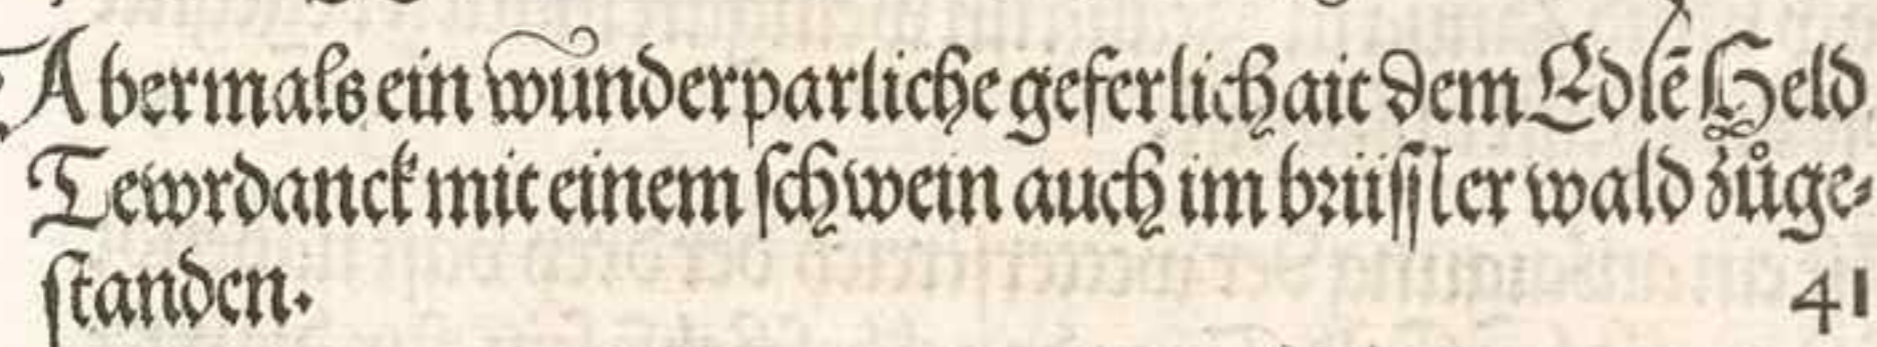 Abermals ein wunderparliche geferlichait dem Edlē Held
Tewrdanck mit einem schwein auch im brüssler wald zůge⸗
standen. 41